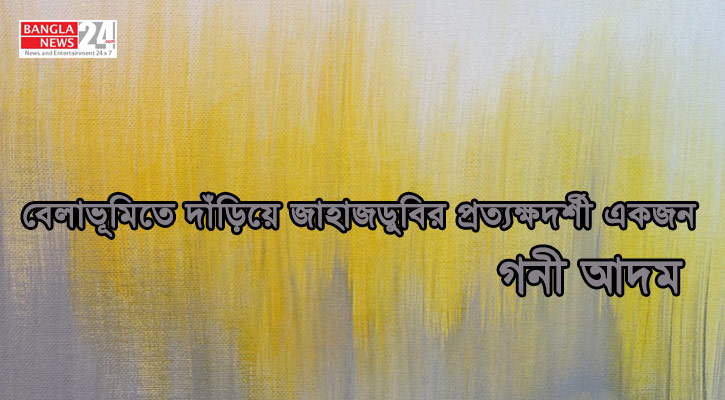 BANGLA
NEWS 24.com
News and Entertainment 24 x 7
বেলাভূমিতে দাঁড়িয়ে জাহাজডুবির প্রত্যক্ষদর্শী একজন
গনী আদম